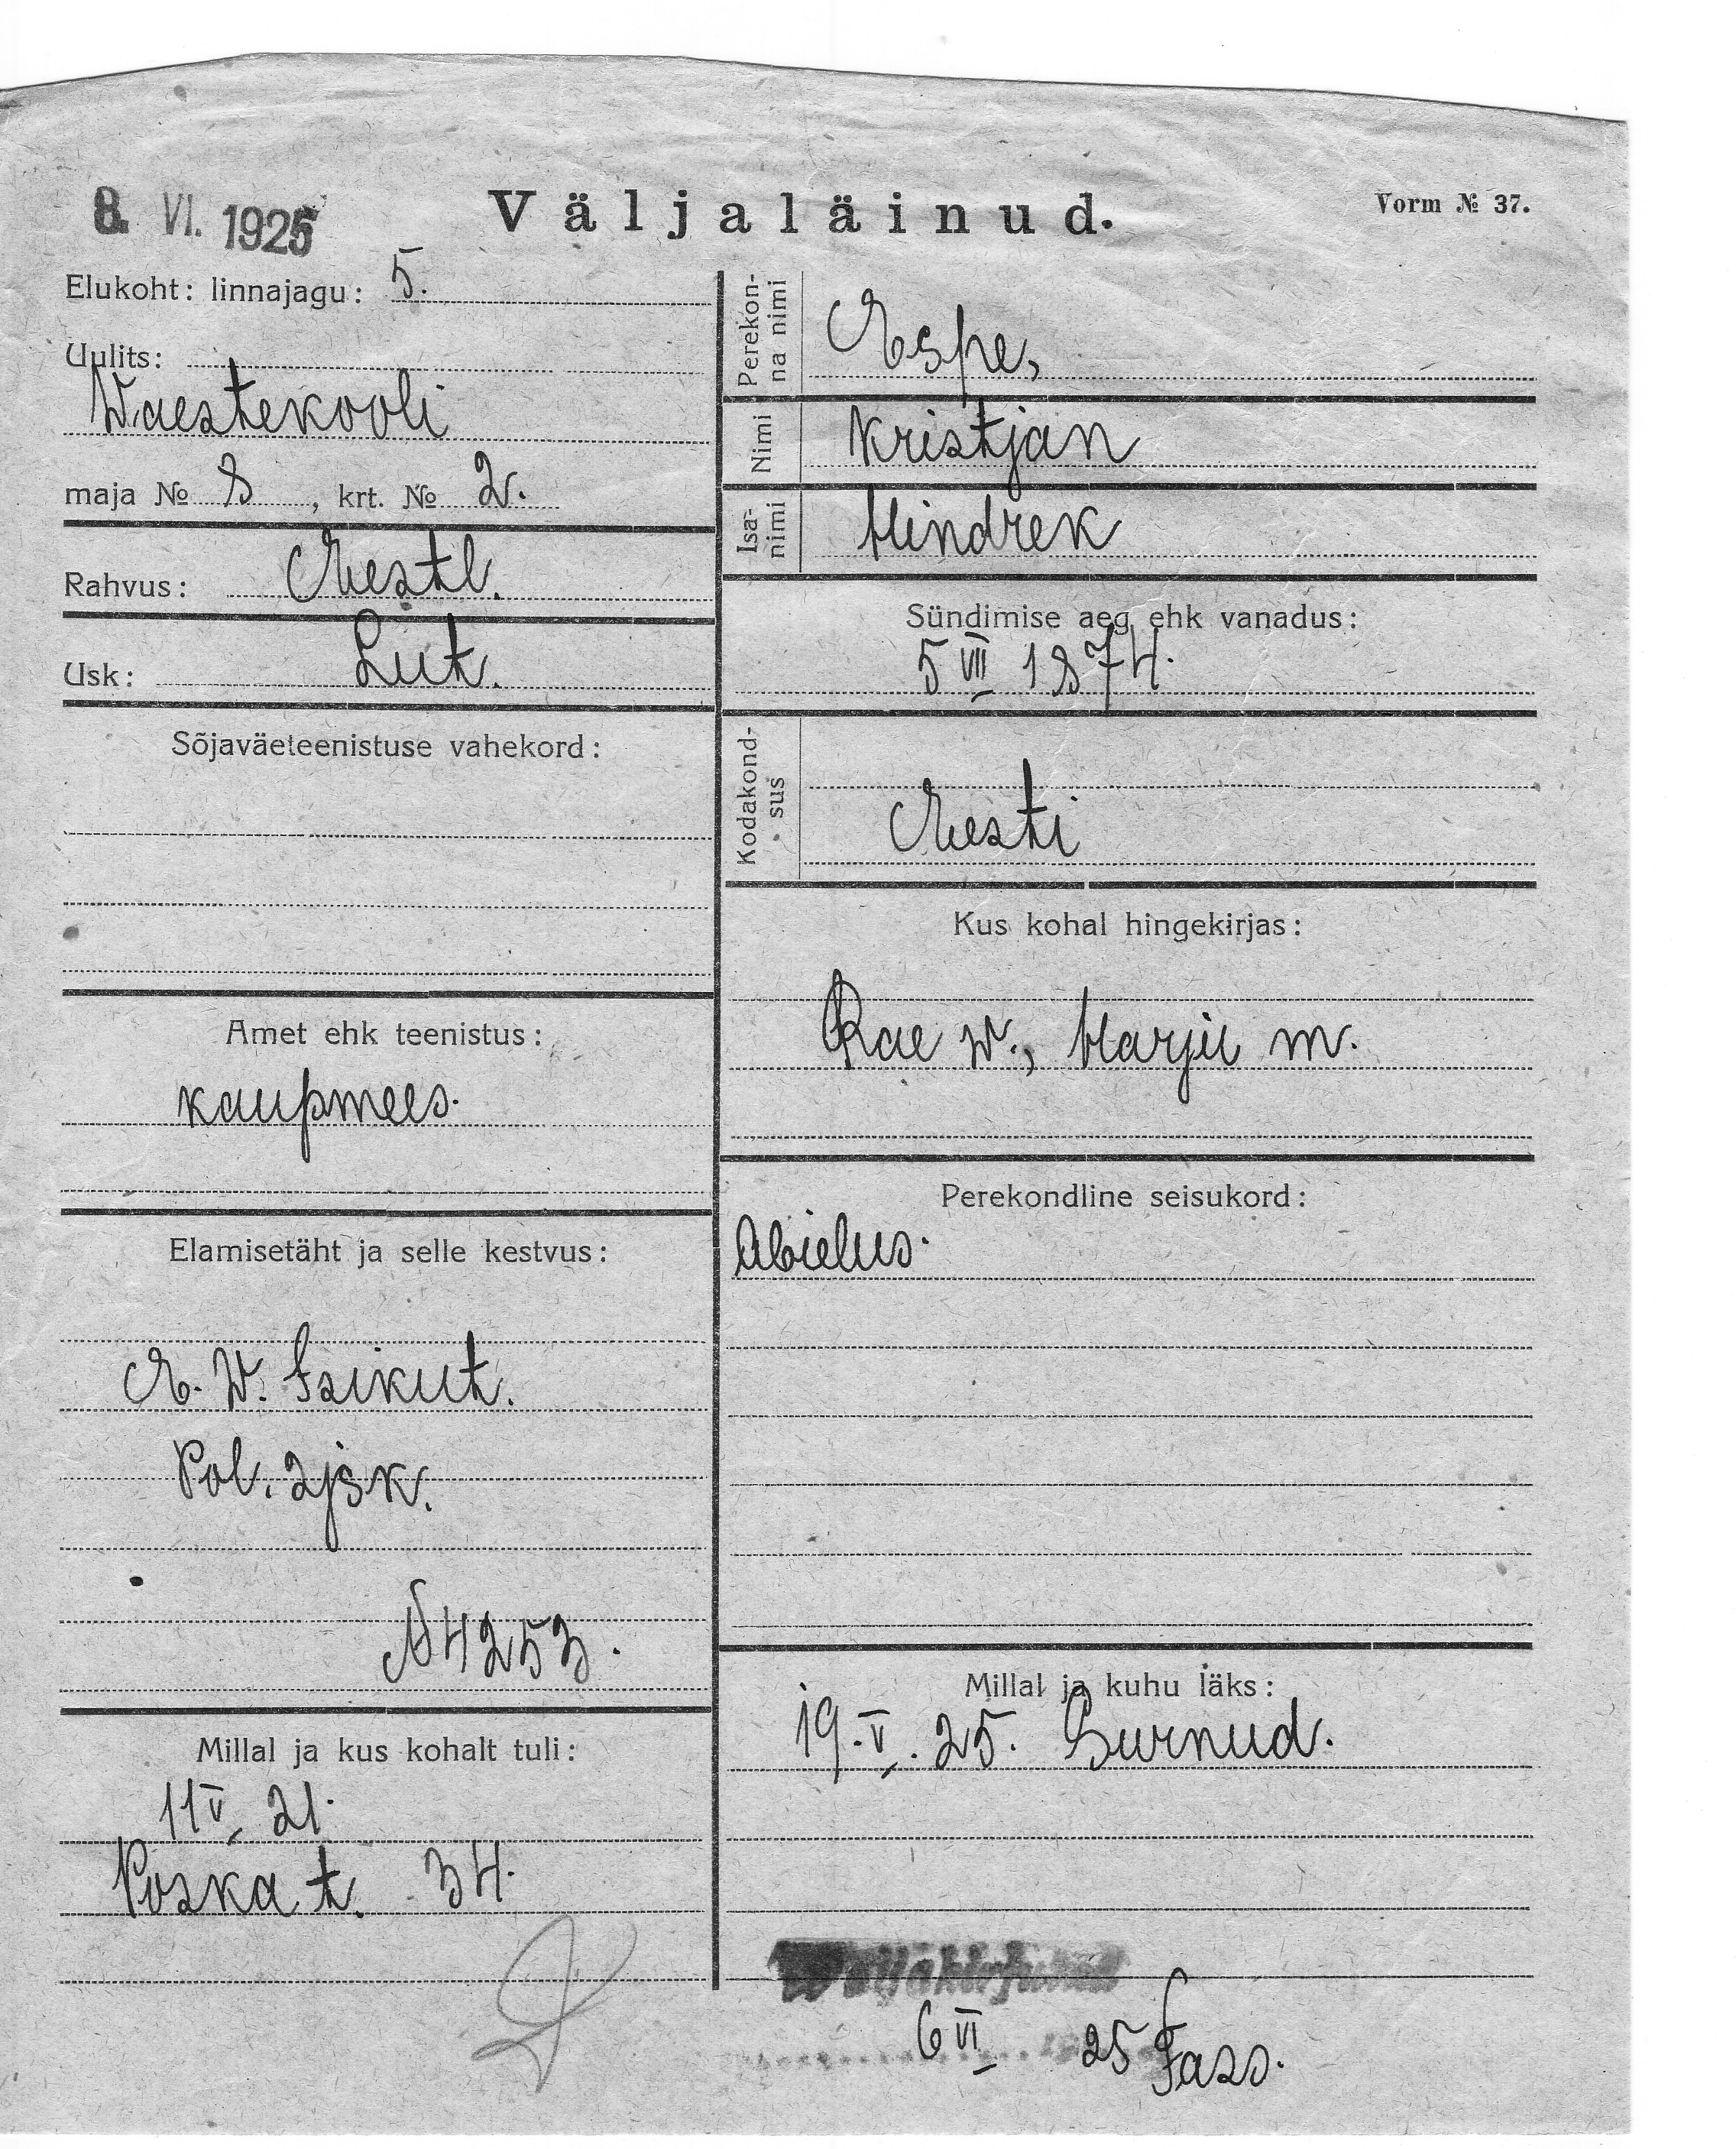 8. VI. 1925
Väljaläinud.
Vorm № 37.
Elukoht: linnajagu: 5.
Uulits:
Waestekooli
maja № 8, krt. № 2.
Rahvus: Eestl.
Usk: Lut.
Sõjaväeteenistuse vahekord:
Amet ehk teenistus:
kaupmees.
Elamisetäht ja selle kestvus:
E. W. Isikut.
Pol. 2jsk.
N 4253.
Millal ja kus kohalt tuli:
11 V 21.
Poska t. 34.
Perekonna nimi
Espe,
Nimi
Kristjan
Isanimi
Hindrek
Sündimise aeg ehk vanadus:
5 VII 1874.
Kodakondsus
Eesti
Kus kohal hingekirjas:
Rae w., Harju m.
Perekondline seisukord:
Abielus.
Millal ja kuhu läks:
19. V. 25. Surnud.
Wäljakirjutud
6 VI 25